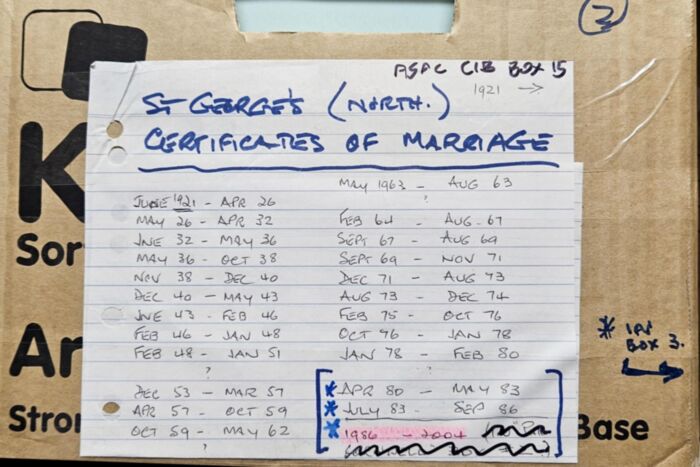 2
ASPC CIB BOX 15
1921 →
ST GEORGE'S (NORTH.)
CERTIFICATES OF MARRIAGE
K
Sor
Ar
Stron
Base
JUNE 1921 - APR 26
MAY 26 - APR 32
JNE 32 - MAY 36
MAY 36 - OCT 38
NOV 38 - DEC 40
DEC 40 - MAY 43
JNE 43 - FEB 46
FEB 46 - JAN 48
FEB 48 - JAN 51
?
DEC 53 - MAR 57
APR 57 - OCT 59
OCT 59 - MAY 62
?
MAY 1963 - AUG 63
?
FEB 64 - AUG-67
SEPT 67 - AUG 69
SEPT 69 - NOV 71
DEC 71 - AUG 73
AUG 73 - DEC 74
FEB 75 - OCT 76
OCT 76 - JAN 78
JAN 78 - FEB 80
* APR 80 - MAY 83
* JULY 83 - SEP 86
* 1986 - 2004
* IN
BOX 3.